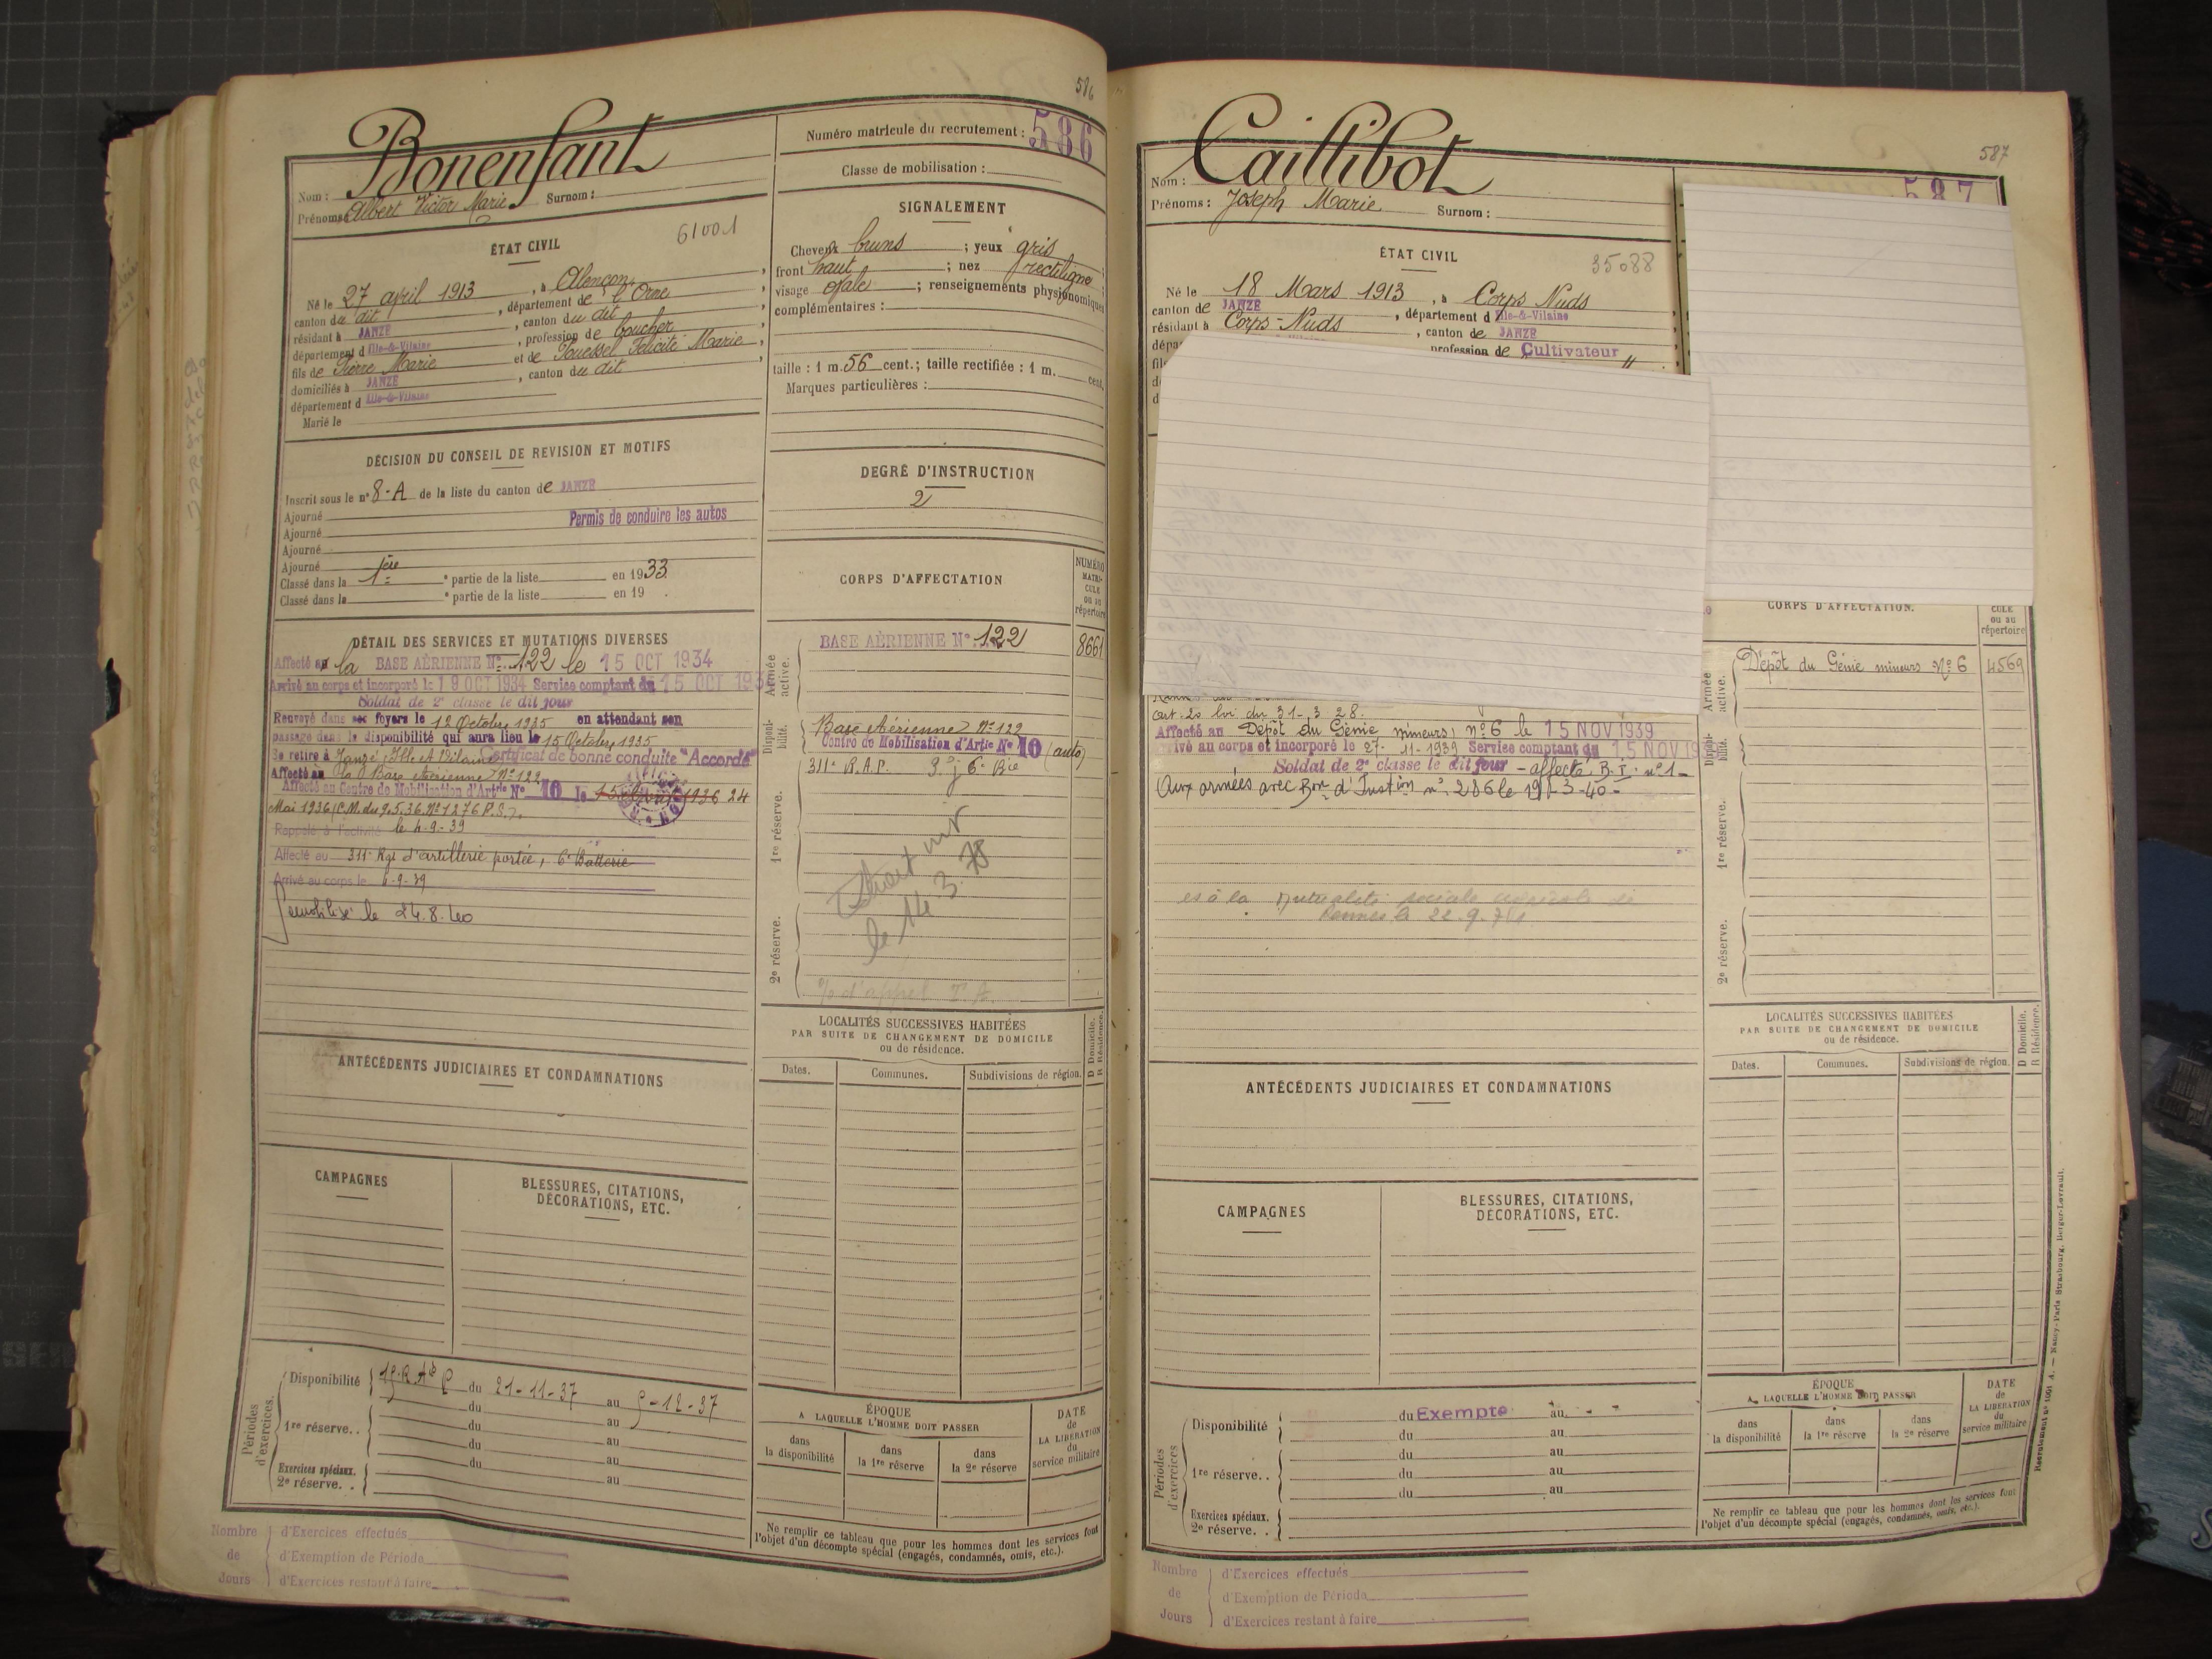 586
Bonenfant
Nom :
Prénoms : Albert Victor Marie Surnom :
Numéro matricule du recrutement : 586
Classe de mobilisation :
ÉTAT CIVIL
61001
Né le 27 avril 1913, à Alençon,
canton du dit, département de l'Orne
résidant à JANZÉ, canton du dit
département d'Ille-&-Vilaine, profession de boucher
fils de Pierre Marie et de Félicité Marie,
domiciliés à JANZÉ, canton du dit
département d'Ille-&-Vilaine
Marié le
SIGNALEMENT
Cheveux bruns ; yeux gris
front haut ; nez rectiligne
visage ovale ; renseignements physionomiques
complémentaires :
taille : 1 m. 56 cent.; taille rectifiée : 1 m. cent.
Marques particulières :
DÉCISION DU CONSEIL DE REVISION ET MOTIFS
Inscrit sous le n° 8-A de la liste du canton de JANZÉ
Ajourné
Permis de conduire les autos
Ajourné
Ajourné
Ajourné
Classé dans la 1ère partie de la liste en 1933
Classé dans la e partie de la liste en 19 .
DEGRÉ D'INSTRUCTION
2
CORPS D'AFFECTATION
NUMÉRO MATRICULE ou au répertoire
DÉTAIL DES SERVICES ET MUTATIONS DIVERSES
Affecté à la BASE AÉRIENNE N° 122 le 15 OCT 1934
Arrivé au corps et incorporé le 19 OCT 1934 Service comptant du 15 OCT 193
Soldat de 2e classe le dit jour
Renvoyé dans ses foyers le 12 Octobre 1935 en attendant son
passage dans la disponibilité qui aura lieu le 15 Octobre 1935
Se retire à Janzé, Ille et Vilaine Certificat de bonne conduite "Accordé"
Affecté à la Base Aérienne N° 122
Affecté au Centre de Mobilisation d'Artie N° 10 le 1936 24
Mai 1936 (C.M. du 9.5.36. N° 1276 P.S.).
Rappelé à l'activité le 4-9-39
Affecté au 311e Rgt d'artillerie portée, 6e Batterie
Arrivé au corps le 4-9-39
Démobilisé le 24.8.40
Armée active.
BASE AÉRIENNE N° 122
8661
Disponibilité.
Base Aérienne N° 122
Centre de Mobilisation d'Artie N° 10 (auto)
311e R.A.P. 6e Bie
1re réserve.
le 14 3. 78
2e réserve.
LOCALITÉS SUCCESSIVES HABITÉES
PAR SUITE DE CHANGEMENT DE DOMICILE
ou de résidence.
Dates. Communes. Subdivisions de région. D Domicile. R Résidence.
ANTÉCÉDENTS JUDICIAIRES ET CONDAMNATIONS
CAMPAGNES
BLESSURES, CITATIONS,
DÉCORATIONS, ETC.
Périodes d'exercices.
Disponibilité du 21-11-37 au -12-37
du au
1re réserve.. du au
du au
Exercices spéciaux. du au
2e réserve. . au
ÉPOQUE
A LAQUELLE L'HOMME DOIT PASSER
dans la disponibilité
dans la 1re réserve
dans la 2e réserve
DATE de LA LIBÉRATION du service militaire
Ne remplir ce tableau que pour les hommes dont les services font
l'objet d'un décompte spécial (engagés, condamnés, omis, etc.).
Nombre de Jours
d'Exercices effectués
d'Exemption de Période
d'Exercices restant à faire
587
Caillibot
Nom :
Prénoms : Joseph Marie Surnom :
587
ÉTAT CIVIL
35088
Né le 18 Mars 1913, à Corps Nuds
canton de JANZÉ, département d'Ille-&-Vilaine
résidant à Corps-Nuds, canton de JANZÉ
profession de Cultivateur
CORPS D'AFFECTATION.
CULE ou au répertoire
Armée active.
Dépôt du Génie mineurs N° 6
4569
Art. 20 loi du 31-3 28.
Affecté au Dépôt du Génie mineurs n° 6 le 15 NOV 1939
Arrivé au corps et incorporé le 27- 11-1939 Service comptant du 15 NOV 19
Soldat de 2e classe le dit jour - affecté B.I. n° 1-
Aux armées avec Bon d'Instion n° 286 le 19-3-40-
Disponibilité.
1re réserve.
2e réserve.
es à la Mutualité sociale agricole de
Rennes le 22.9.
LOCALITÉS SUCCESSIVES HABITÉES
PAR SUITE DE CHANGEMENT DE DOMICILE
ou de résidence.
Dates. Communes. Subdivisions de région. D Domicile. R Résidence.
ANTÉCÉDENTS JUDICIAIRES ET CONDAMNATIONS
CAMPAGNES
BLESSURES, CITATIONS,
DÉCORATIONS, ETC.
Périodes d'exercices
Disponibilité du Exempté au
du au
du au
1re réserve.. du au
du au
Exercices spéciaux.
2e réserve. .
ÉPOQUE
A LAQUELLE L'HOMME DOIT PASSER
dans la disponibilité
dans la 1re réserve
dans la 2e réserve
DATE de LA LIBÉRATION du service militaire
Ne remplir ce tableau que pour les hommes dont les services font
l'objet d'un décompte spécial (engagés, condamnés, omis, etc.).
Recrutement n° 1001 A. — Nancy-Paris-Strasbourg, Berger-Levrault.
Nombre de Jours
d'Exercices effectués
d'Exemption de Période
d'Exercices restant à faire